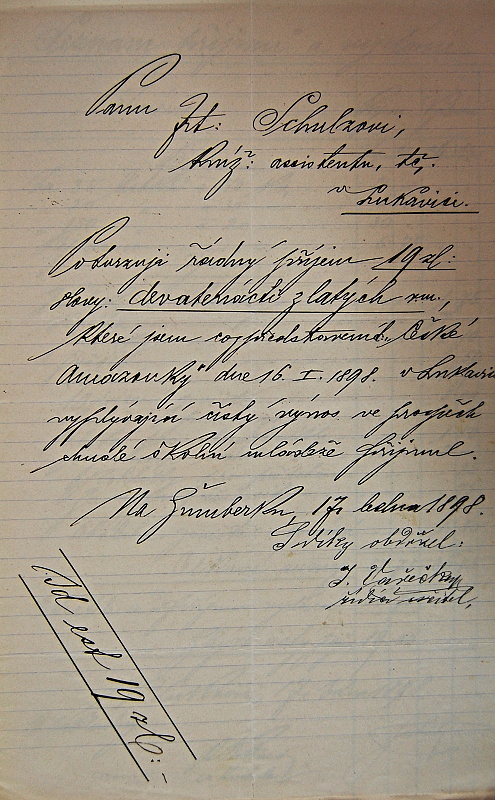 Panu
Frt: Schulzovi,
kníž: assistentu, tč,
v Lukavici.
Potvrzuji řádný příjem 19 zl:
slovy: devatenácti zlatých rm.,
které jsem co představená „České
Amazonky" dne 16. I. 1898. v Lukavici
vyplývající čistý výnos ve prospěch
chudé školní mládeže přijmul.
Na Žumberku, 17. ledna 1898.
S díky obdržel:
J. Vařečka,
řídící učitel,
Id est 19 zl:-